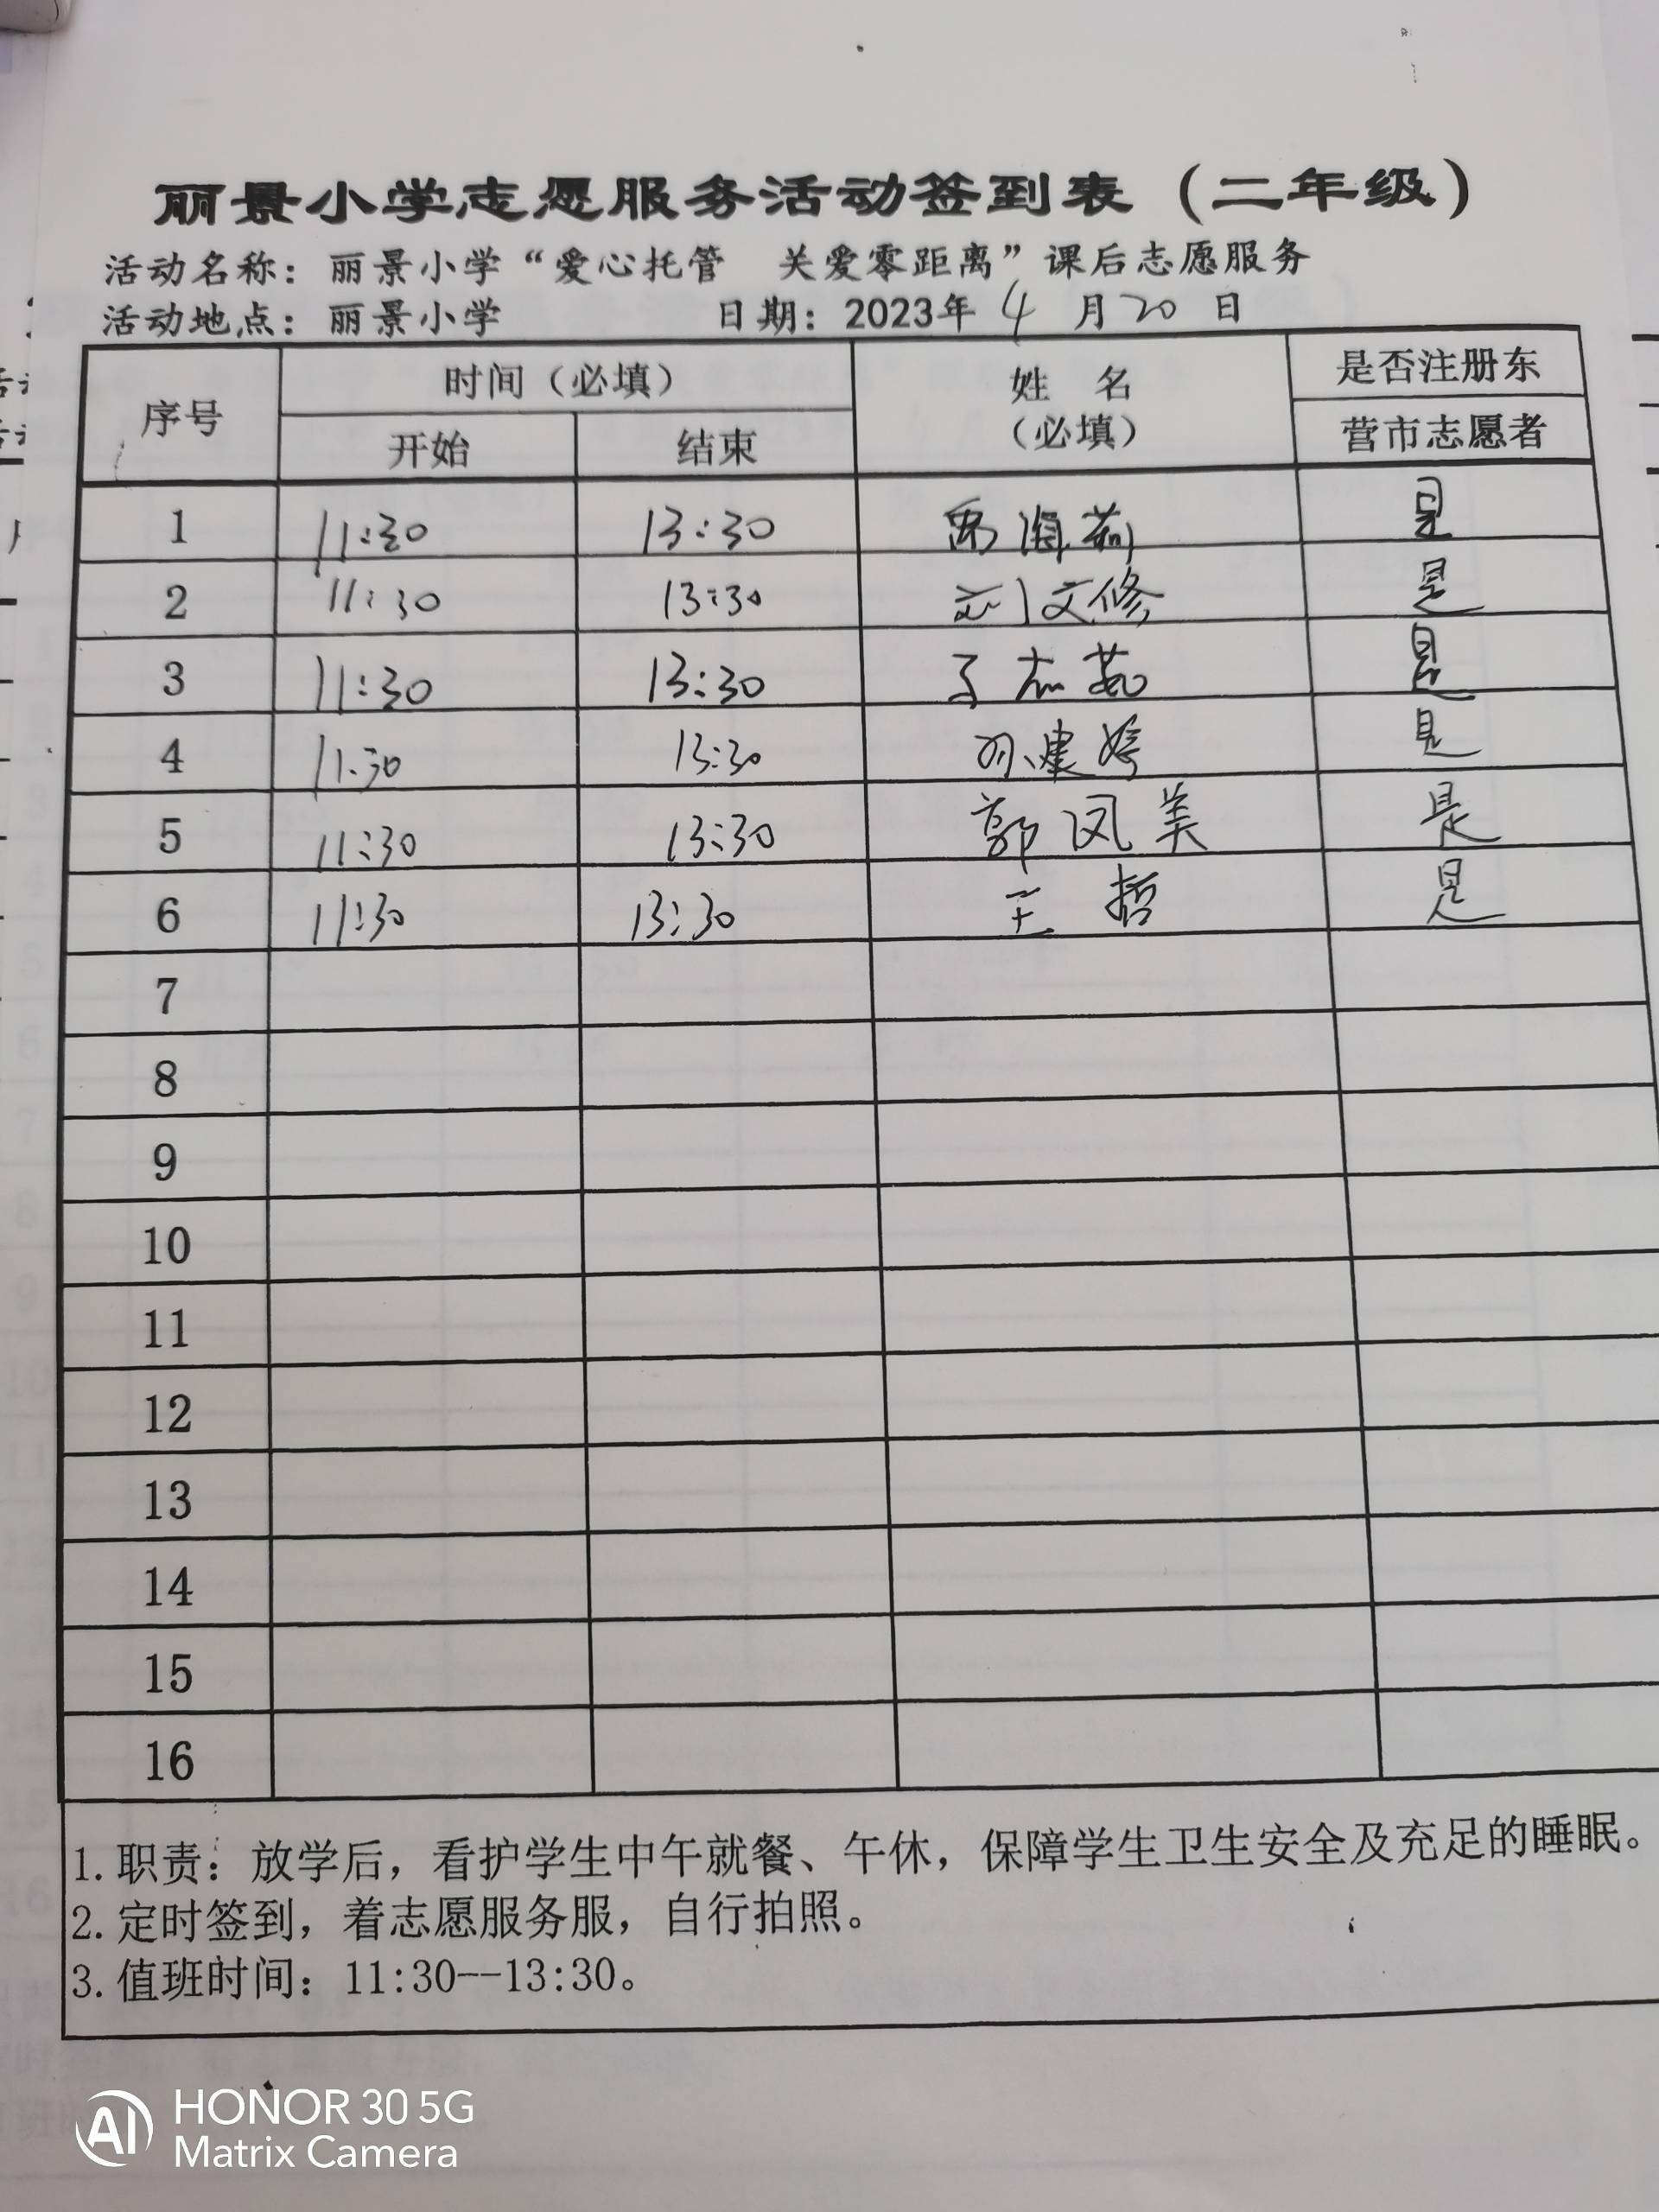 丽景小学志愿服务活动签到表（二年级）
活动名称：丽景小学“爱心托管　关爱零距离”课后志愿服务
活动地点：丽景小学　日期：2023年 4 月 20 日
序号　时间（必填）　姓　名（必填）　是否注册东营市志愿者
开始　结束
1　11:30　13:30　是
2　11:30　13:30　刘文修　是
3　11:30　13:30　是
4　11:30　13:30　孙建婷　是
5　11:30　13:30　郭凤美　是
6　11:30　13:30　王哲　是
7
8
9
10
11
12
13
14
15
16
1.职责：放学后，看护学生中午就餐、午休，保障学生卫生安全及充足的睡眠。
2.定时签到，着志愿服务服，自行拍照。
3.值班时间：11:30--13:30。
AI HONOR 30 5G
Matrix Camera